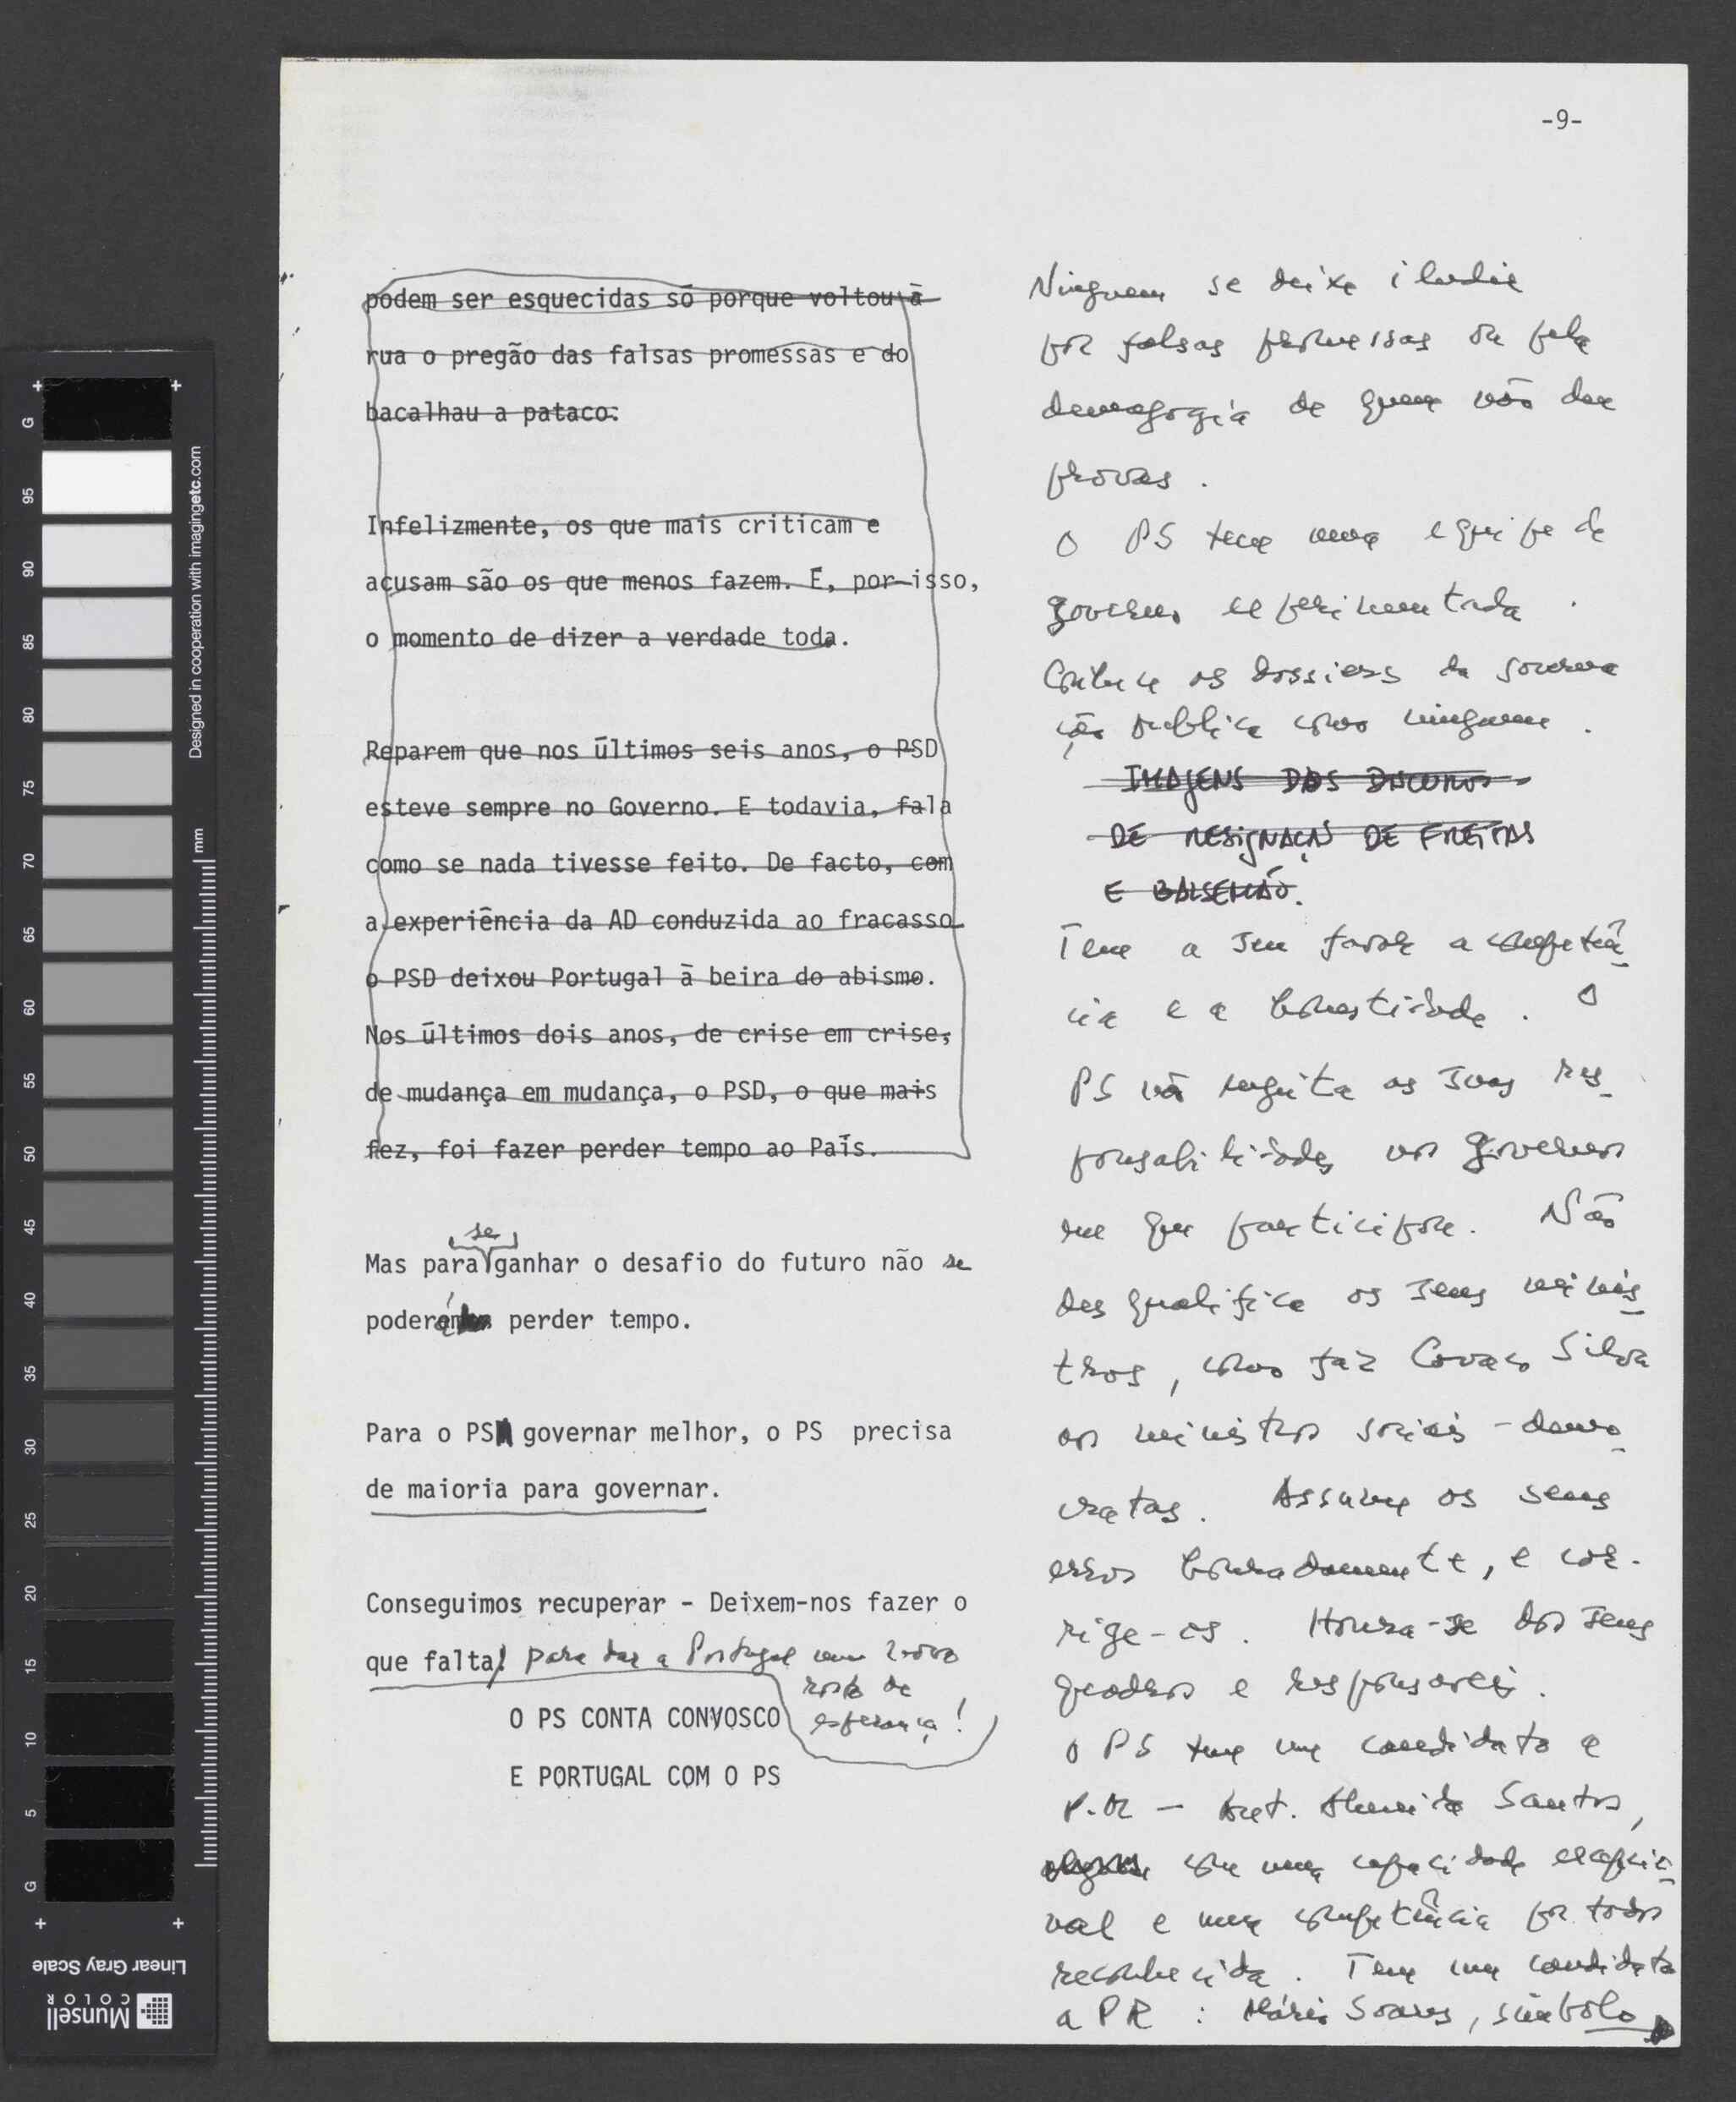 -9-
podem ser esquecidas só porque voltou à
rua o pregão das falsas promessas e do
bacalhau a pataco.
Infelizmente, os que mais criticam e
acusam são os que menos fazem. É, por isso,
o momento de dizer a verdade toda.
Reparem que nos últimos seis anos, o PSD
esteve sempre no Governo. E todavia, fala
como se nada tivesse feito. De facto, com
a experiência da AD conduzida ao fracasso
o PSD deixou Portugal à beira do abismo.
Nos últimos dois anos, de crise em crise,
de mudança em mudança, o PSD, o que mais
fez, foi fazer perder tempo ao País.
se
Mas para ganhar o desafio do futuro não se
poderá perder tempo.
Para o PS governar melhor, o PS precisa
de maioria para governar.
Conseguimos recuperar - Deixem-nos fazer o
que falta! para dar a Portugal um novo
rosto de
esperança!
O PS CONTA CONVOSCO
E PORTUGAL COM O PS
Ninguem se deixe iludir
por falsas promessas ou pela
demagogia de quem não deu
provas.
O PS tem uma equipe de
governo experimentada.
Conhece os dossiers da governa
ção publica como ninguem.
IMAGENS DOS DISCURSOS
DE RESIGNAÇÃO DE FREITAS
E BALSEMÃO.
Tem a seu favor a competên
cia e a honestidade. O
PS não enjeita as suas res
ponsabilidades nos governos
em que participou. Não
desqualifica os seus minis
tros, como faz Cavaco Silva
aos ministros sociais-demo
cratas. Assume os seus
erros honradamente, e cor-
rige-os. Honra-se dos seus
quadros e responsáveis.
O PS tem um candidato a
P.M - Ant. Almeida Santos,
com uma capacidade excepcio
nal e uma competência por todos
reconhecida. Tem um candidato
a PR : Mário Soares, símbolo
Linear Gray Scale
Munsell
COLOR
Designed in cooperation with imagingetc.com
mm
G
95
90
85
80
75
70
65
60
55
50
45
40
35
30
25
20
15
10
5
G